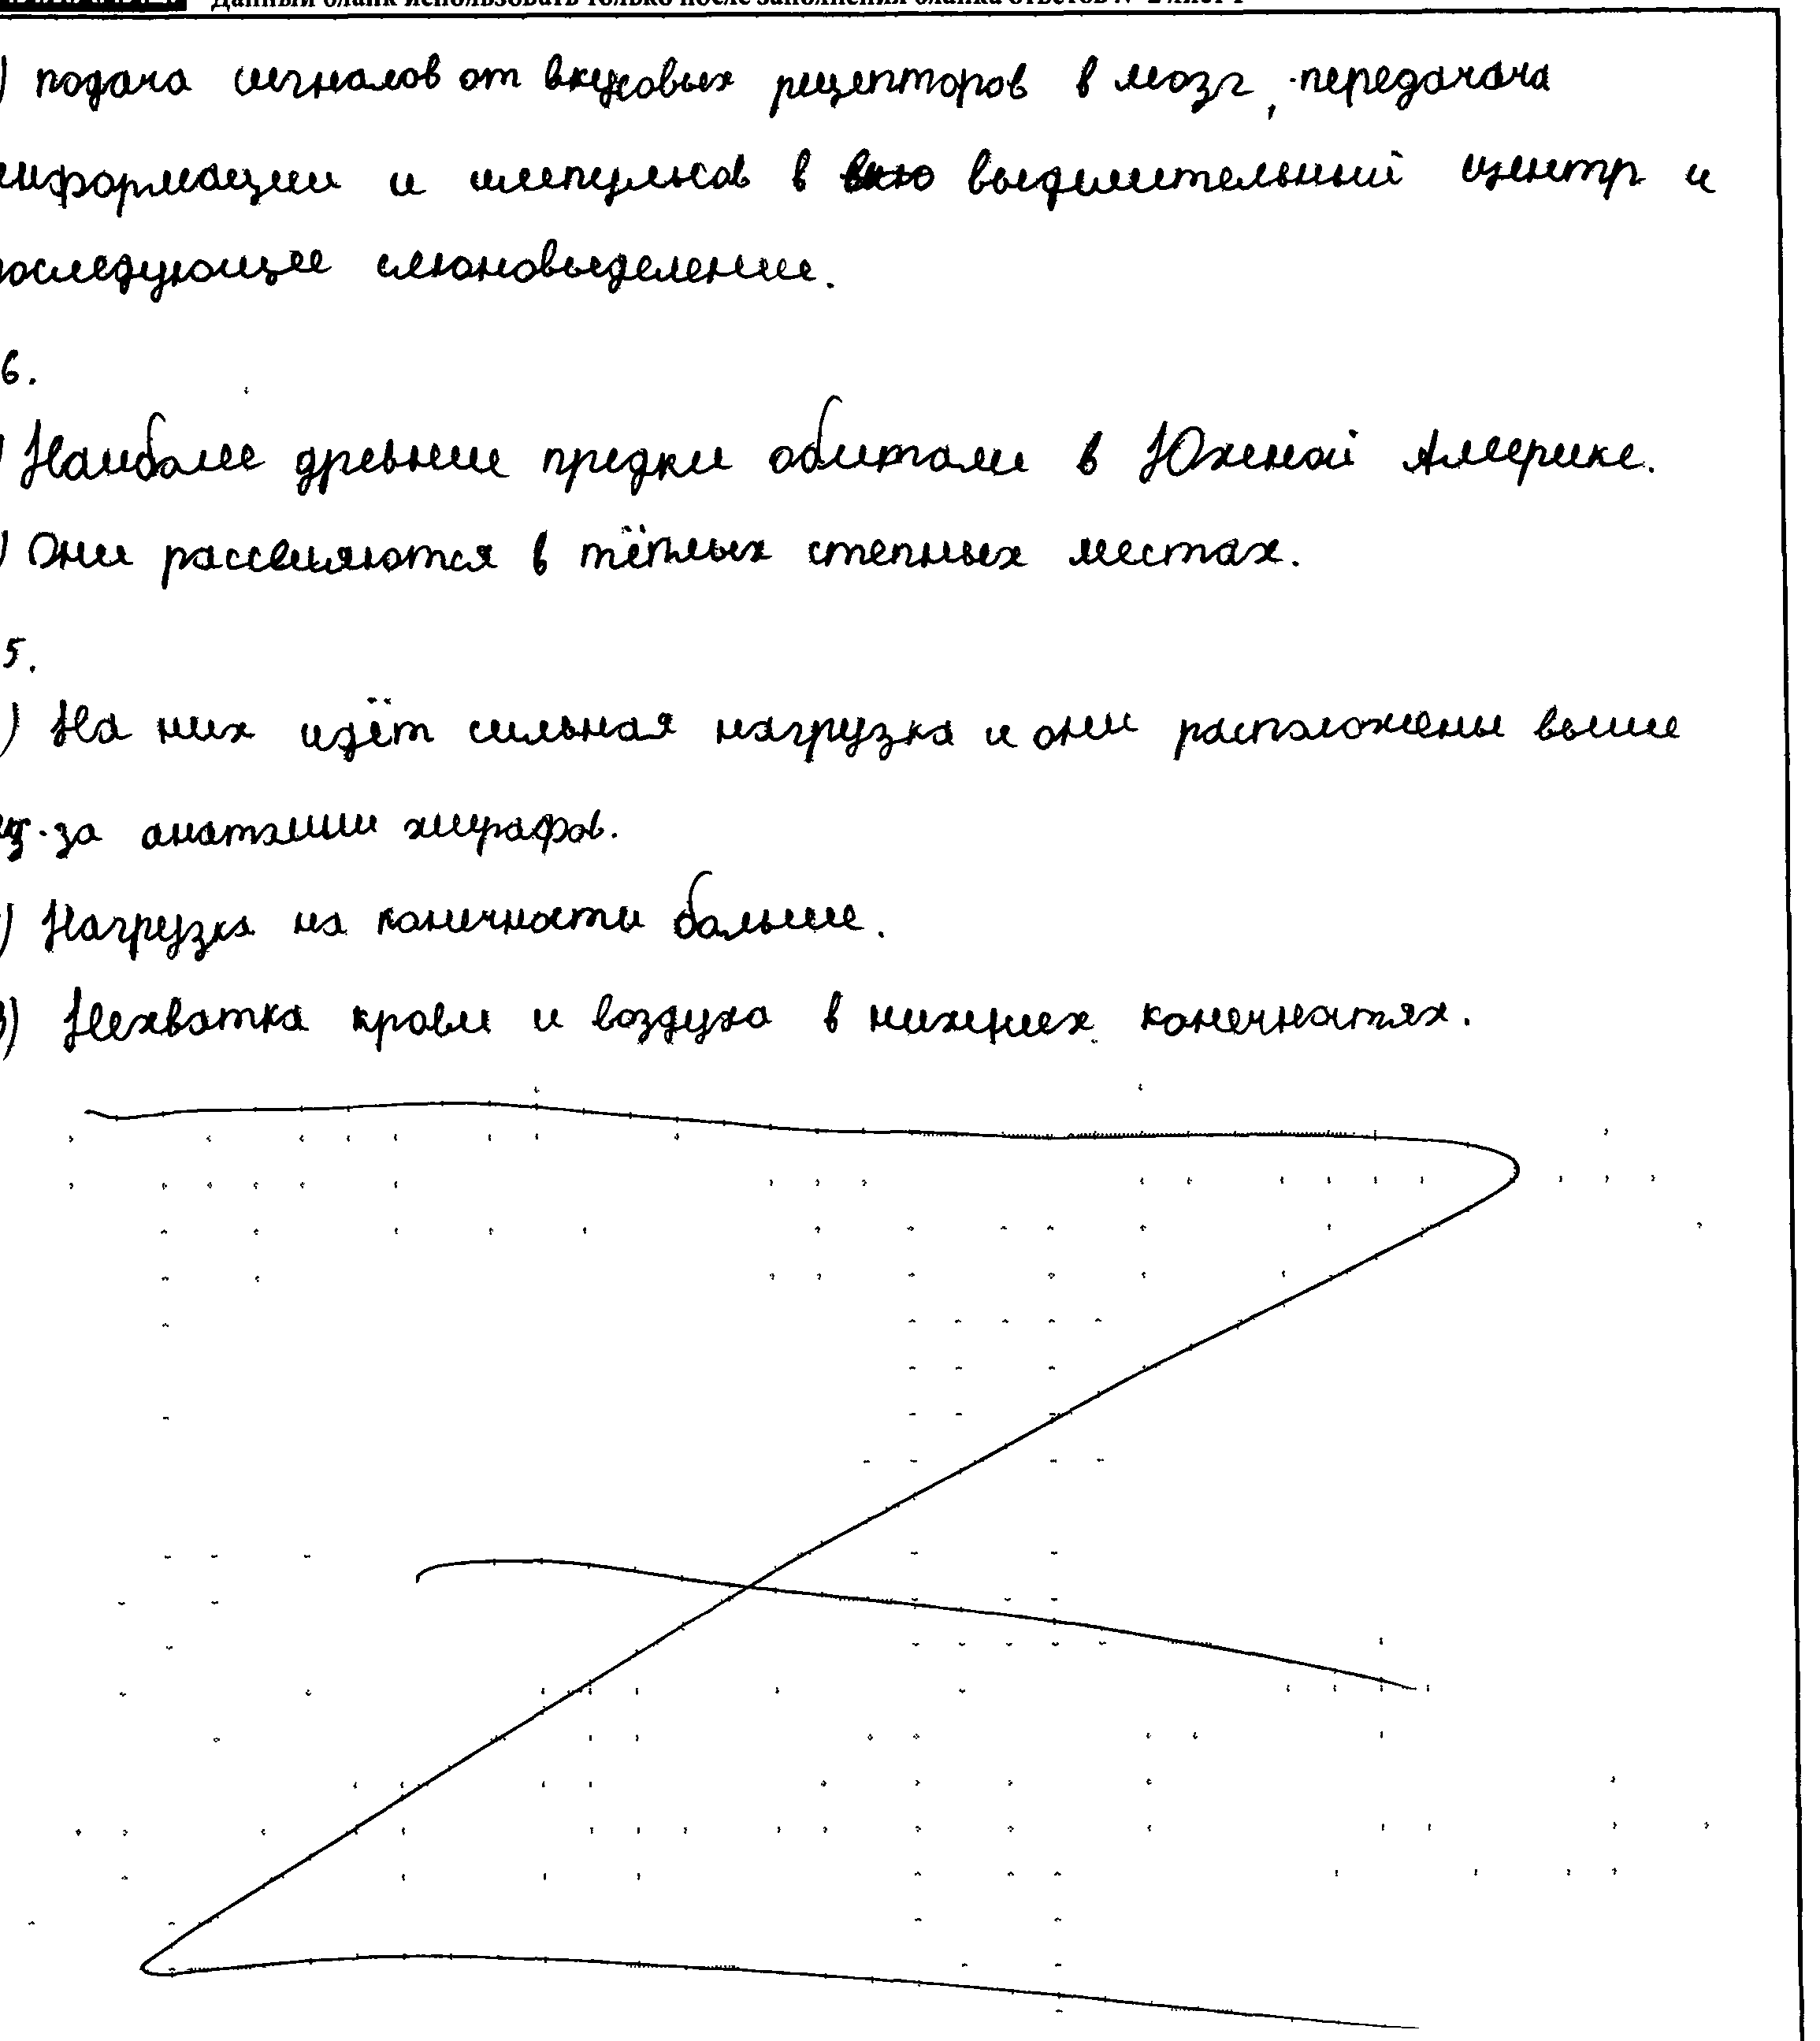 Данный бланк использовать только после заполнения бланка ответов № 2 лист 1
) подача сигналов от вкусовых рецепторов в мозг, передачача
информации и импульсов в выделительный центр и
последующее слюновыделение.
6.
) Наиболее древние предки обитали в Южной Америке.
) Они расселяются в тёплых степных местах.
5.
) На них идёт сильная нагрузка и они расположены выше
из-за анатомии жирафов.
) Нагрузка на конечности больше.
3) Нехватка крови и воздуха в нижних конечностях.